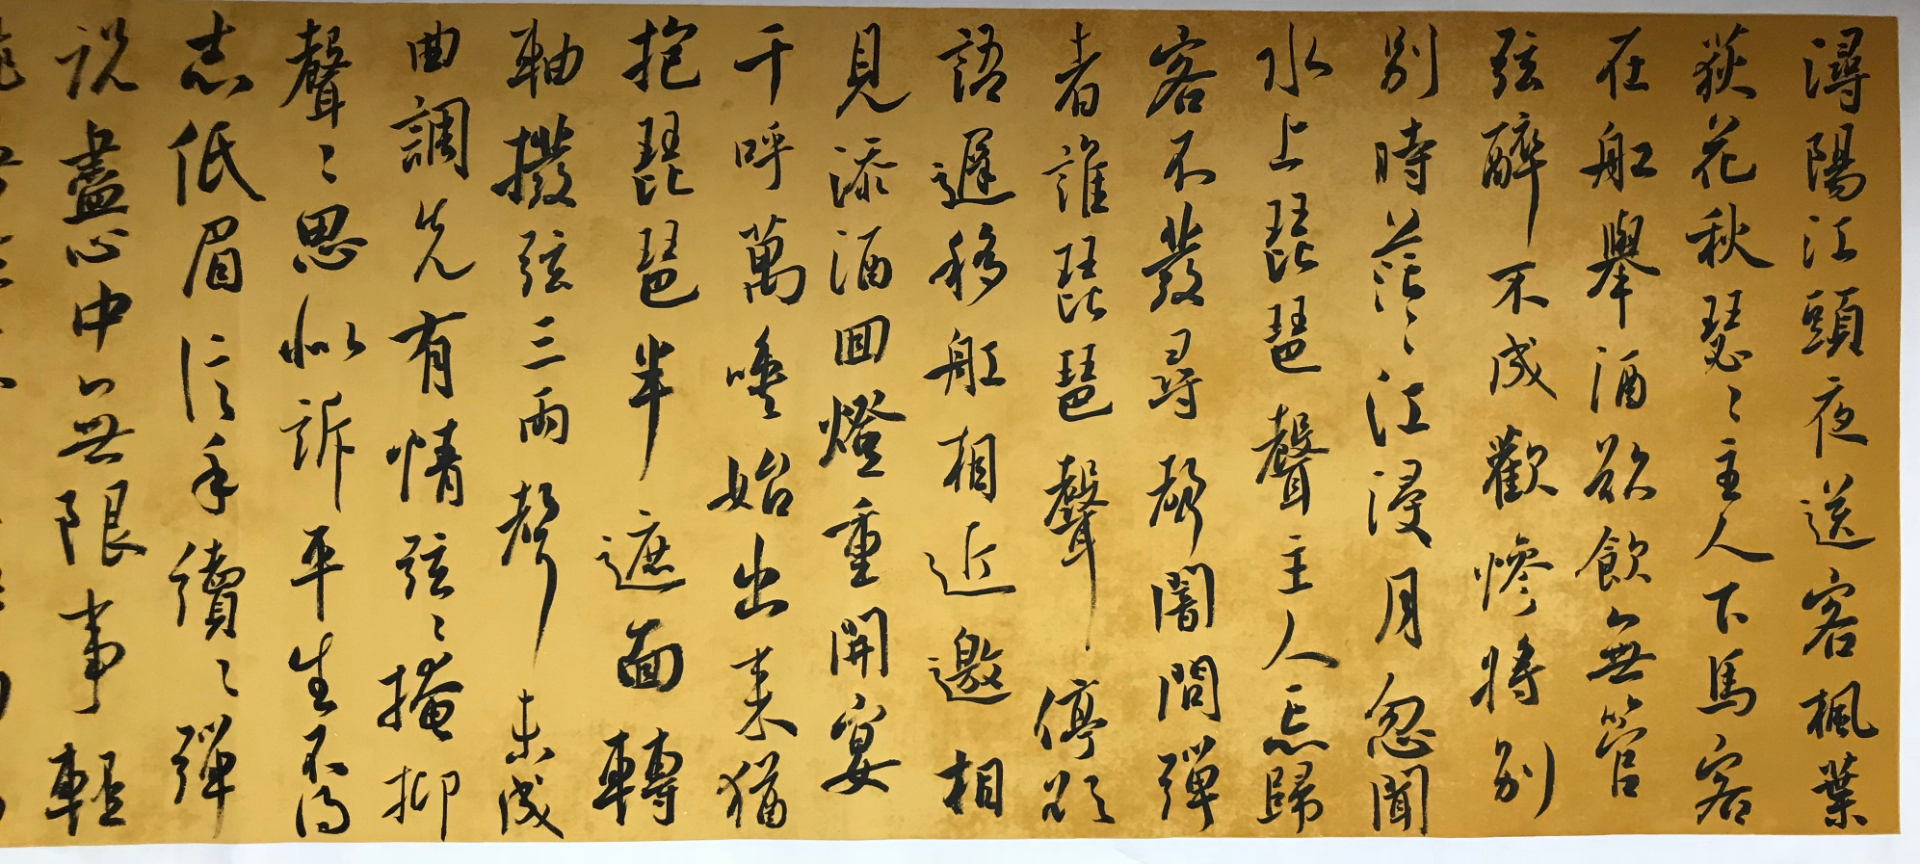 潯陽江頭夜送客楓葉
荻花秋瑟〻主人下馬客
在舩舉酒欲飲無管
弦醉不成歡慘將別
別時茫〻江浸月忽聞
水上琵琶聲主人忘歸
客不發尋聲闇問彈
者誰琵琶聲停欲
語遲移舩相近邀相
見添酒回燈重開宴
千呼萬喚始出来猶
抱琵琶半遮面轉
軸撥弦三兩聲未成
曲調先有情弦〻掩抑
聲〻思似訴平生不得
志低眉信手續〻彈
説盡心中無限事輕